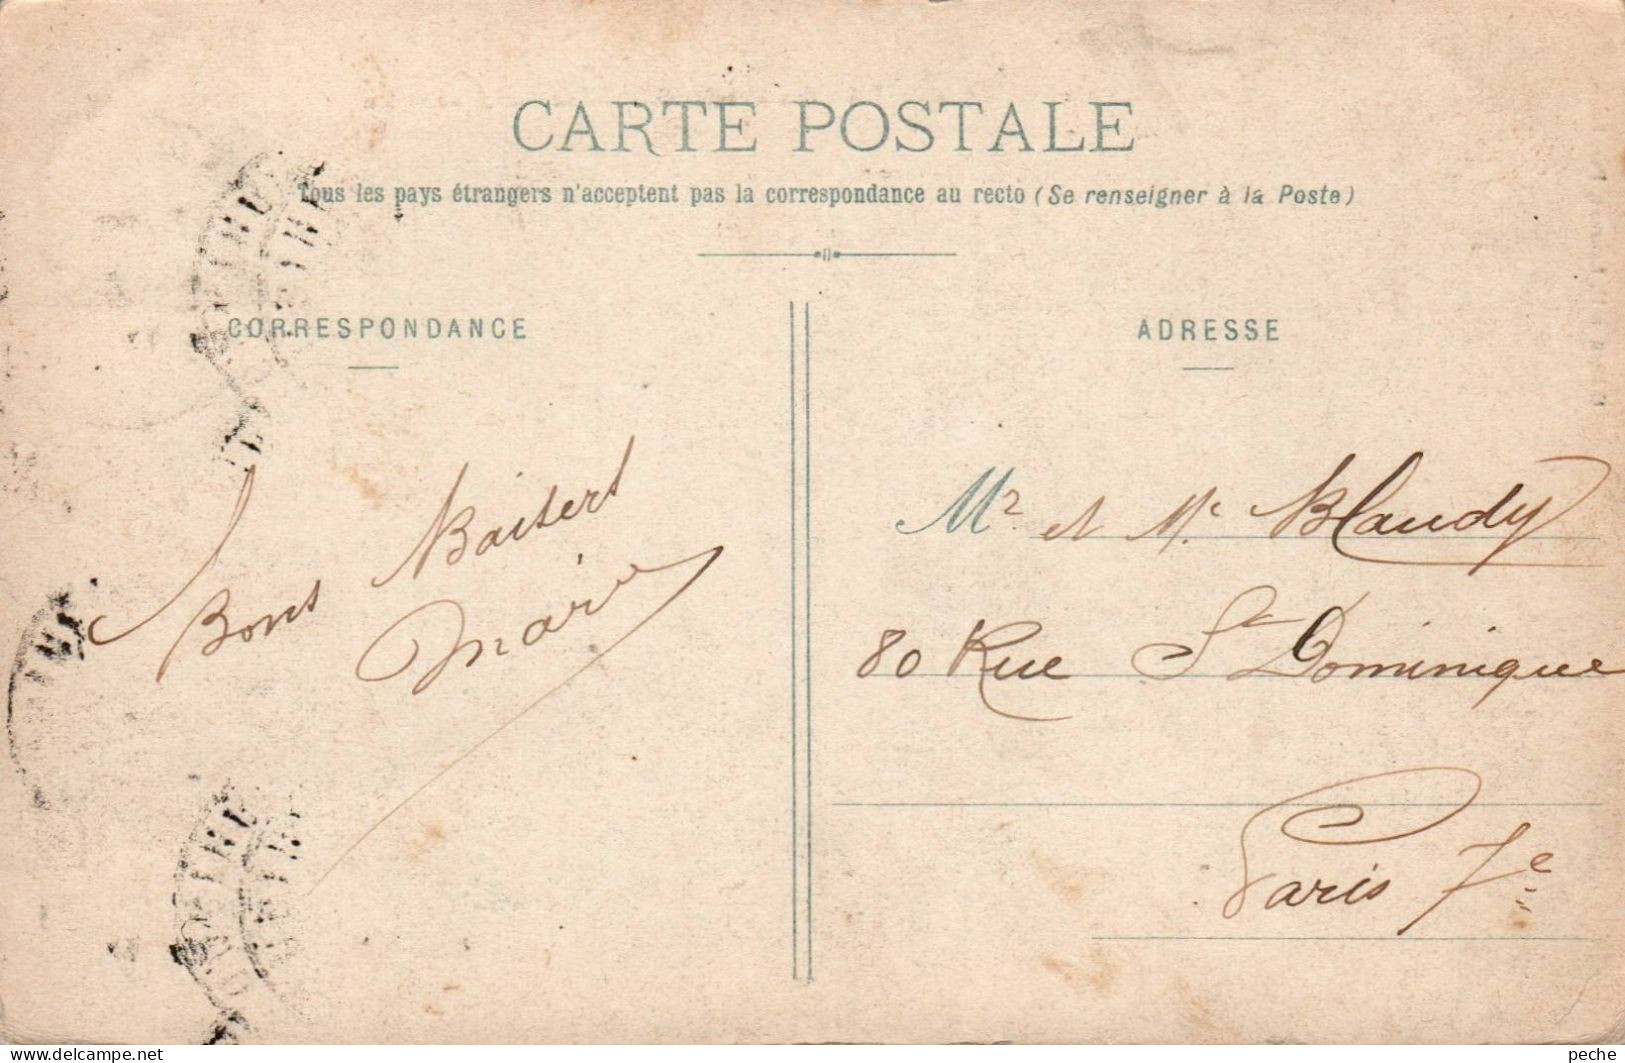 CARTE POSTALE
Tous les pays étrangers n'acceptent pas la correspondance au recto (Se renseigner à la Poste)
CORRESPONDANCE
Bons Baisers
Marie
ADRESSE
Mr et Me Blaudy
80 Rue St Dominique
Paris 7e
delcampe.net
peche